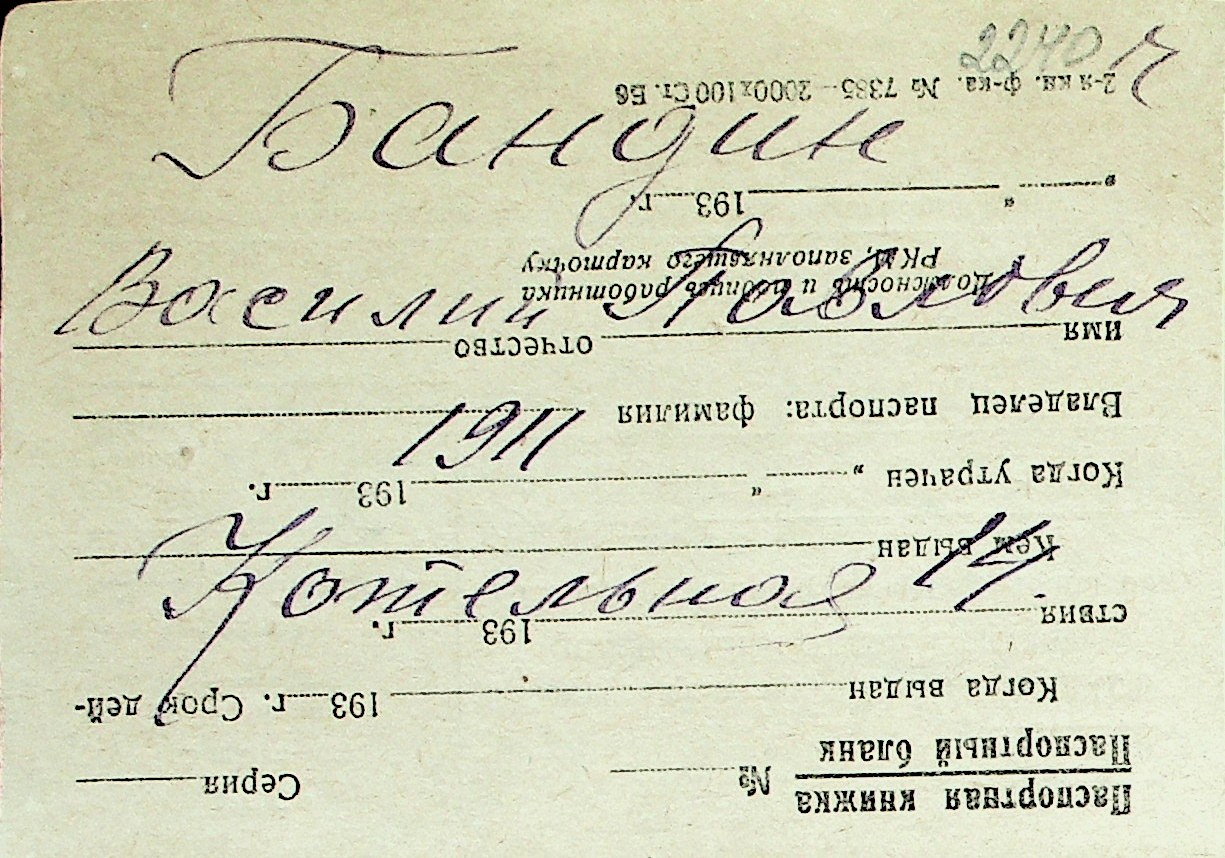 2240 ч
Бандин
Василий Павлович
1911
Котельная 14.
Паспортная книжка
Паспортный бланк
№ Серия
Когда выдан 193 г. Срок дей-
ствия 193 г.
Кем выдан
Когда утрачен „ “ 193 г.
Владелец паспорта: фамилия
имя отчество
Должность и подпись работника
РКМ, заполнявшего карточку
„ “ 193 г.
2-я кн. ф-ка. № 7385—2000х100 Ст. Б6